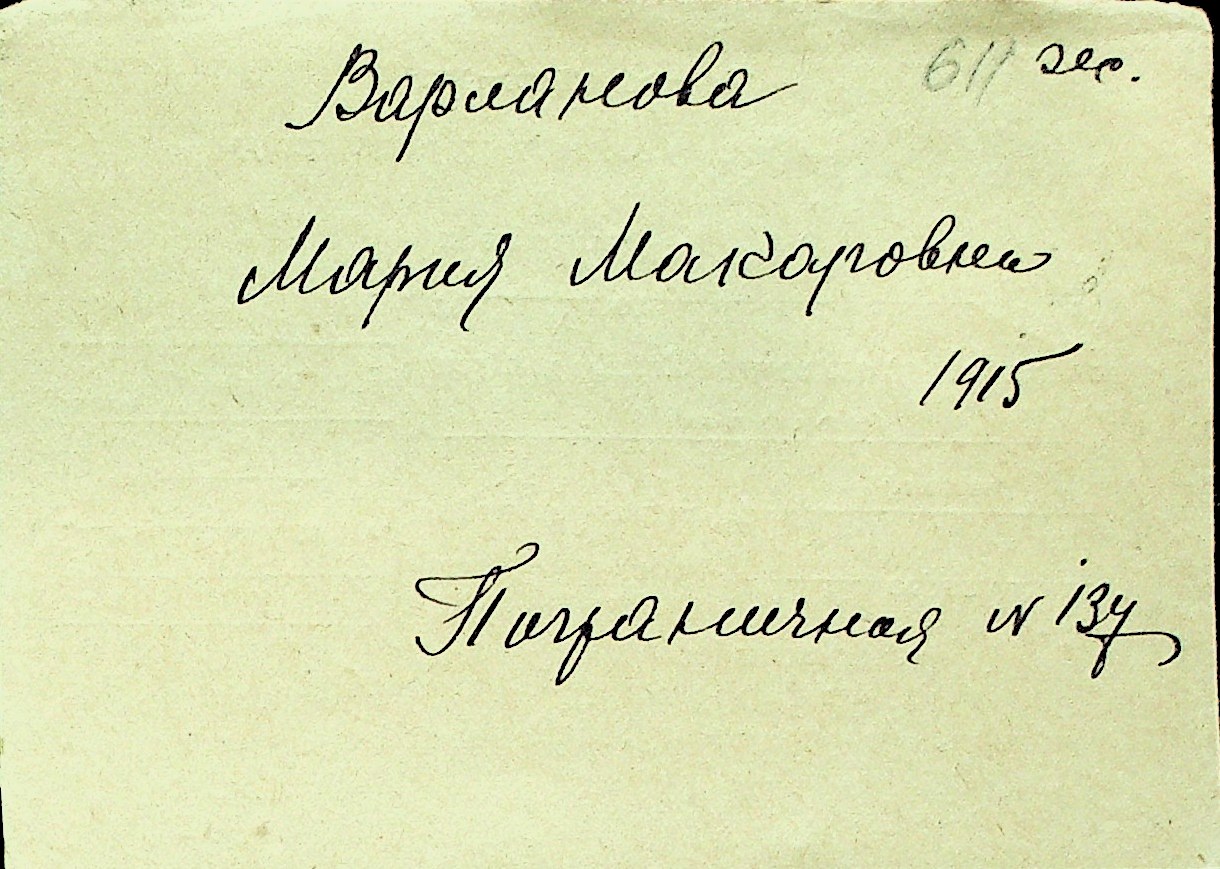 Варланова 611
Мария Макаровна
1915
Пограничная № 134